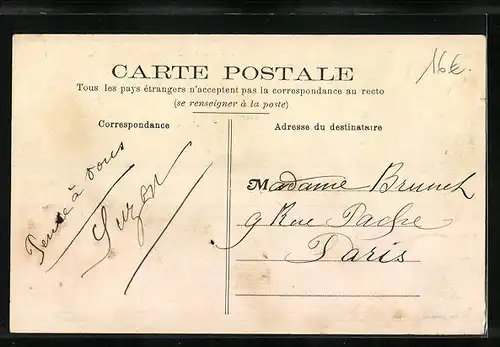 16€.
CARTE POSTALE
Tous les pays étrangers n'acceptent pas la correspondance au recto
(se renseigner à la poste)
Correspondance
Pense à vous
Suzon
Adresse du destinataire
Madame Brunet
9 Rue Pache
Paris